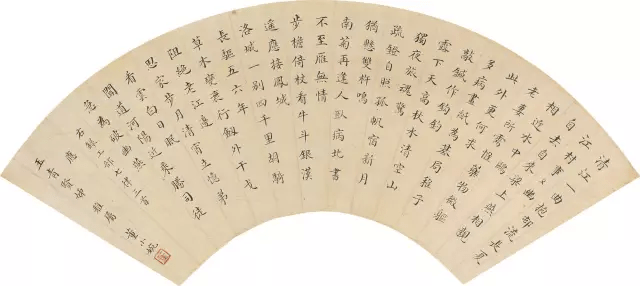 清江一曲抱邨流長夏
江村事事幽
自去自來梁上燕相親
相近水中鷗
老妻畫紙為棊局稚子
敲鍼作釣鉤
多病所須唯藥物微軀
此外更何求
露下天高秋水清空山
獨夜旅魂驚
疏鐙自照孤帆宿新月
猶懸雙杵鳴
南菊再逢人臥病北書
不至雁無情
步檐倚杖看牛斗銀漢
遙應接鳳城
洛城一別四千里胡騎
長驅五六年
草木變衰行劍外干戈
阻絕老江邊
思家步月清宵立憶弟
看雲白日眠
聞道河陽近乘勝司徒
急為破幽燕
右錄工部七律三首
應
青賢坤 雅屬 董小婉